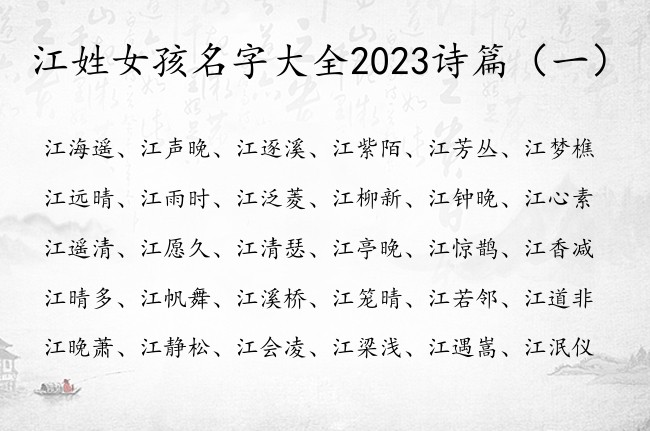 江姓女孩名字大全2023诗篇（一）
江海遥、江声晚、江逐溪、江紫陌、江芳丛、江梦樵
江远晴、江雨时、江泛菱、江柳新、江钟晚、江心素
江遥清、江愿久、江清瑟、江亭晚、江惊鹊、江香减
江晴多、江帆舞、江溪桥、江笼晴、江若邻、江道非
江晚萧、江静松、江会凌、江梁浅、江遇嵩、江泯仪